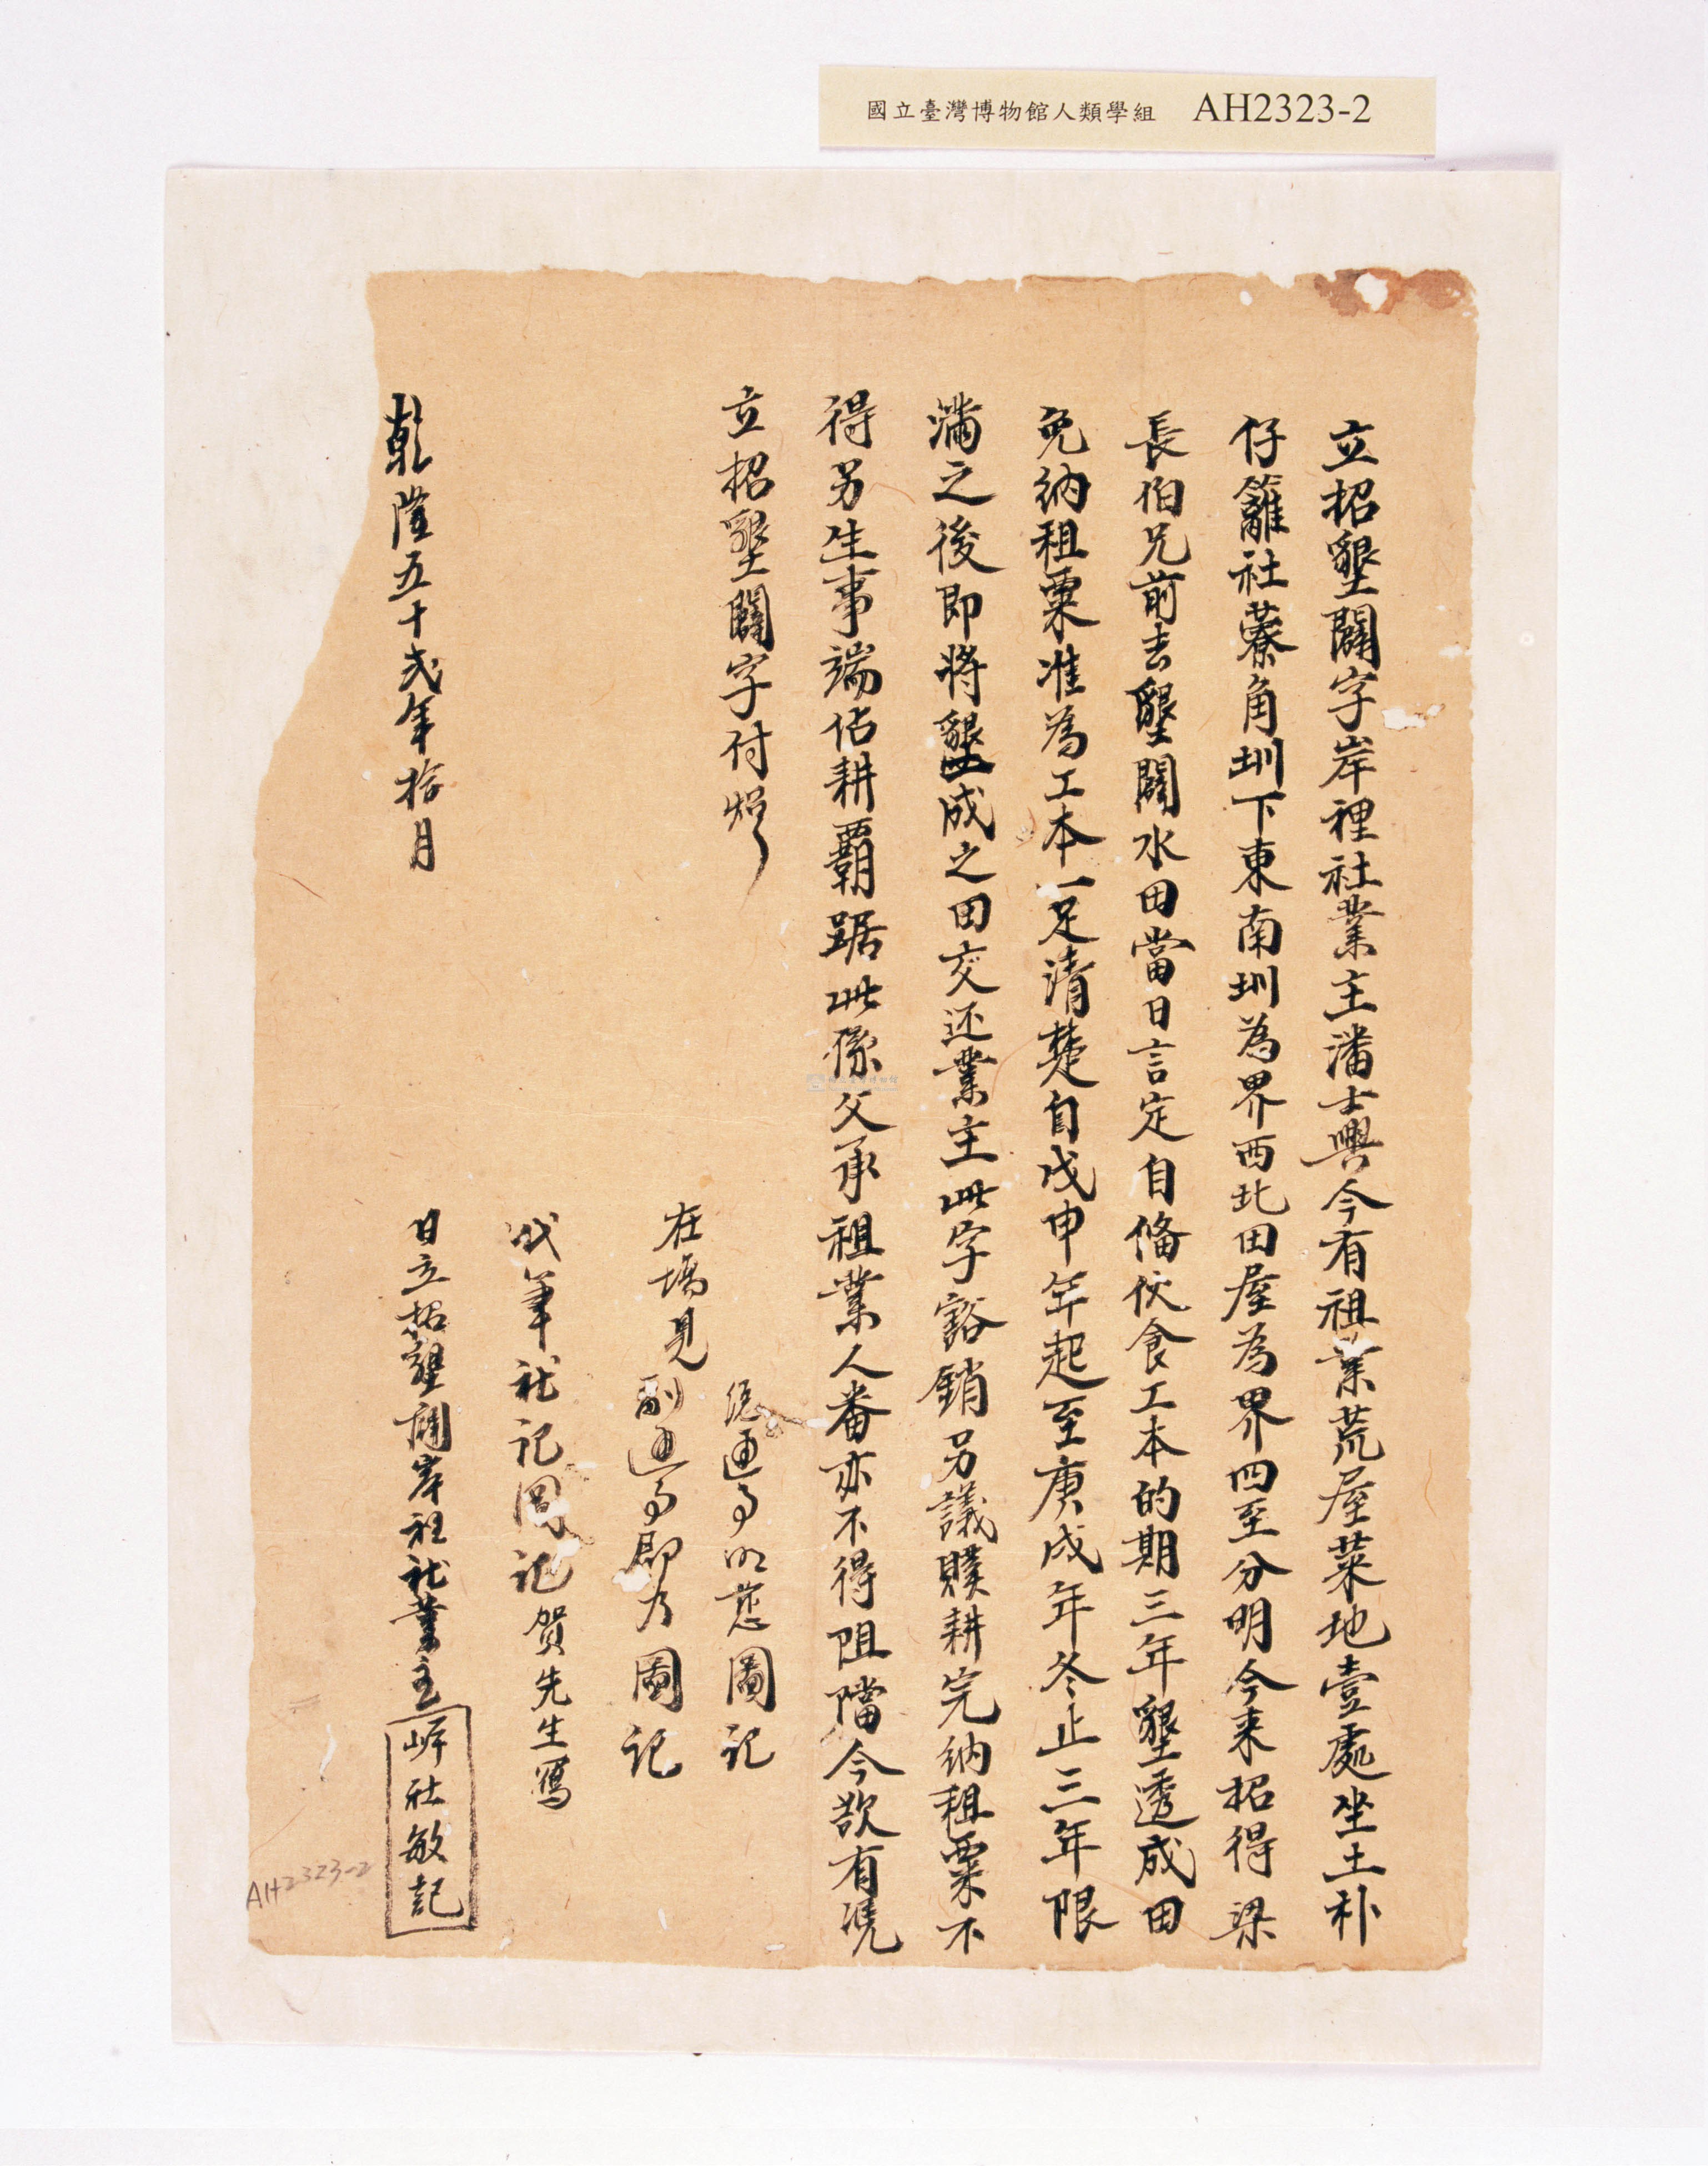 國立臺灣博物館人類學組 AH2323-2
立招墾闢字岸裡社業主潘士興今有祖業荒屋菜地壹處坐土朴
仔籬社藔角圳下東南圳為界西北田屋為界四至分明今来招得梁
長伯兄前去墾闢水田當日言定自俻伙食工本的期三年墾透成田
免納租粟准為工本一足清楚自戊申年起至庚戌年冬止三年限
滿之後即將墾成之田交还業主此字豁銷另議贌耕完納租粟不
得另生事端佔耕覇踞此係父承祖業人番亦不得阻擋今欲有凴
立招墾闢字付炤
在塲見
通事 慈圖記
副通事郡乃圖記
代筆社記圖記賀先生寫
乾隆五十弍年拾月
日立招墾闢岸裡社業主
岸社敏記
AH2323-2